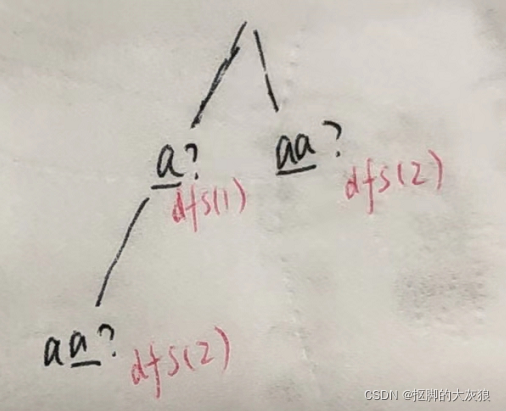 a? aa?
dfs(1) dfs(2)
aa? dfs(2)
CSDN @抠脚的大灰狼